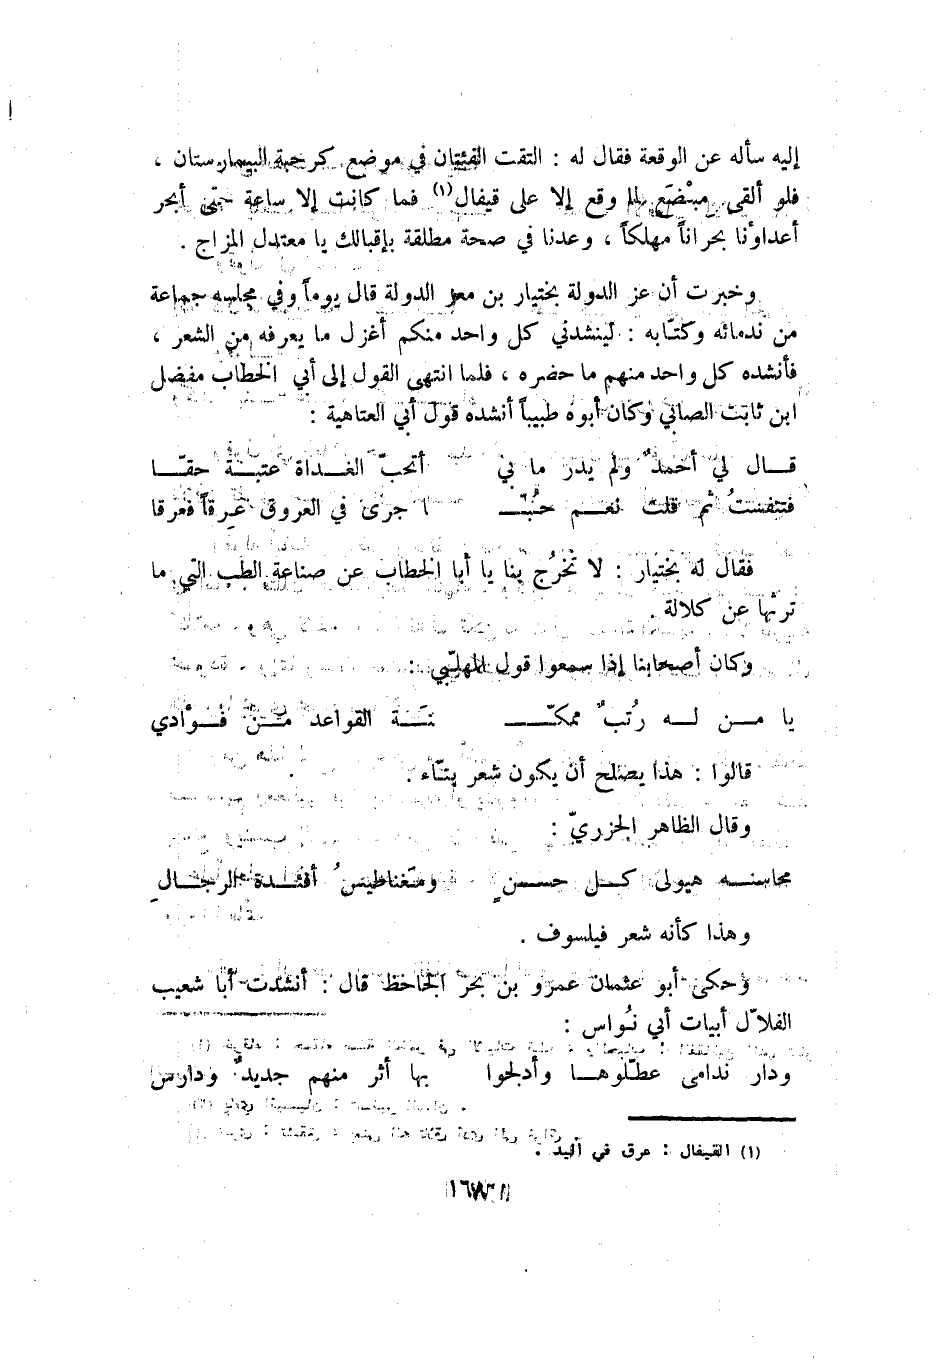 إليه سأله عن الوقعة فقال له : التقت الفئتان في موضع كرحبة البيمارستان ،
فلو ألقى مبضع لما وقع إلا على قيفال(١) فما كانت إلا ساعة حتى أبحر
أعداؤنا بحراناً مهلكاً ، وعدنا في صحة مطلقة بإقبالك يا معتدل المزاج .
وخبرت أن عز الدولة بختيار بن معز الدولة قال يوماً وفي مجلسه جماعة
من ندمائه وكتّابه : لينشدني كل واحد منكم أغزل ما يعرفه من الشعر ،
فأنشده كل واحد منهم ما حضره ، فلما انتهى القول إلى أبي الخطاب مفضل
ابن ثابت الصابي وكان أبوه طبيباً أنشده قول أبي العتاهية :
قـــال لي أحمدٌ ولم يدر ما بي أتحبّ الغـــداة عتبـــة حقـّـا
فتنفستُ ثم قلت نعـــم حبُّبّـــا جرى في العروق عرقاً فعرقا
فقال له بختيار : لا تخرُج بنا يا أبا الخطاب عن صناعة الطب التي ما
ترثها عن كلالة .
وكان أصحابنا إذا سمعوا قول المهلّبي :
يا مـــن لـــه رُتبٌ ممكنّـــنـَــة القواعد مـــن فـــؤادي
قالوا : هذا يصلح أن يكون شعر بنّاء .
وقال الظاهر الجزريّ :
محاسنـــه هيولى كـــل حســنٍ ومغناطيسُ أفئـــدة الرجـــالِ
وهذا كأنه شعر فيلسوف .
وحكى أبو عثمان عمرو بن بحر الجاحظ قال : أنشدت أبا شعيب
القلاّل أبيات أبي نُواس :
ودار ندامى عطّلوهـــا وأدلجوا بها أثر منهم جديدٌ ودارس
(١) القيفال : عرق في اليد .